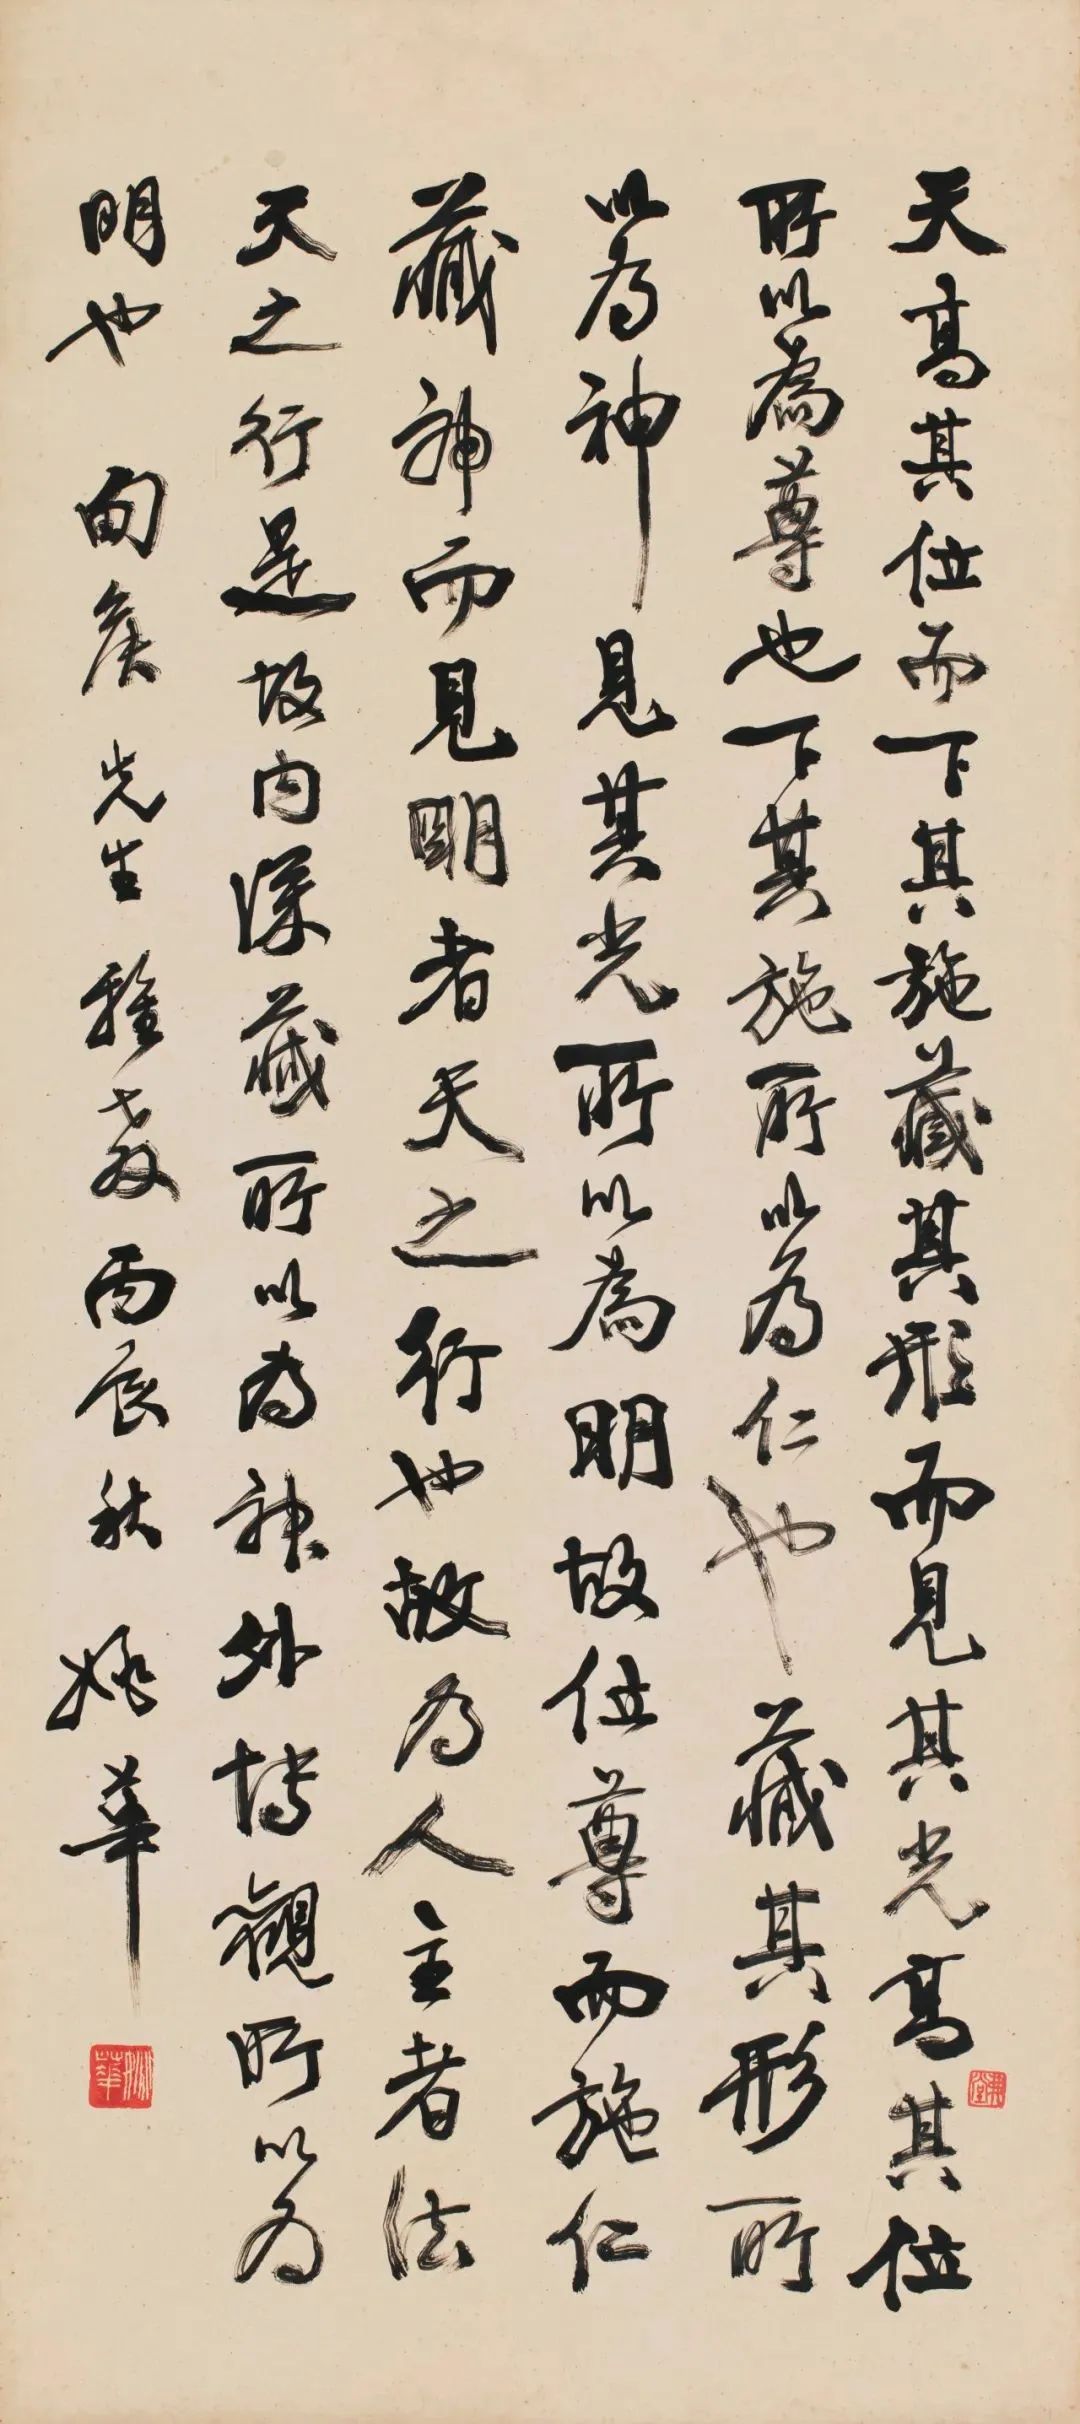 天高其位而下其施藏其形而見其光高其位
所以為尊也下其施所以為仁也藏其形所
以為神見其光所以為明故位尊而施仁
藏神而見明者天之行也故為人主者法
天之行是故内深藏所以為神外博觀所以為
明也 甸侯先生雅教丙辰秋 姚華
姚華